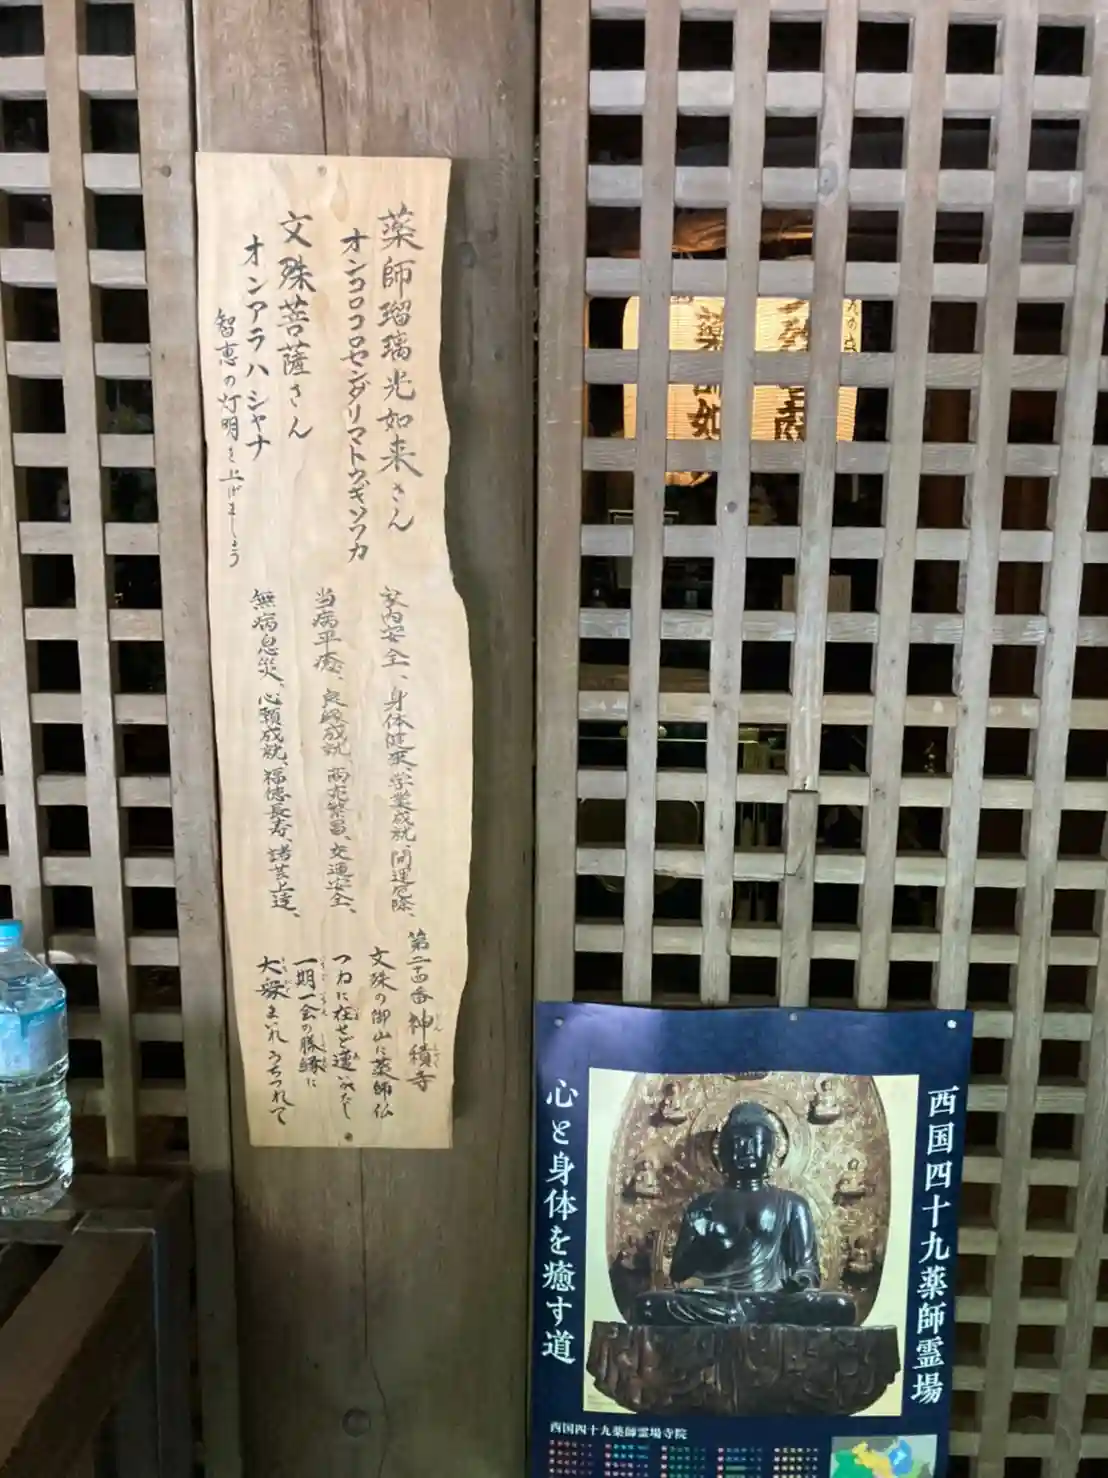 薬師瑠璃光如来さん
オンコロコロセンダリマトウギソワカ
文殊菩薩さん
オンアラハシャナ
智恵の灯明を上げましょう
家内安全、身体健康、学業成就、開運厄除、
当病平癒、良縁成就、商売繁昌、交通安全、
無病息災、心願成就、福徳長寿、諸芸上達、
神積寺
文殊の御山に薬師仏
つねに在せど
一期一会の勝縁に
大衆まいれうちつれて
薬師如
西国四十九薬師霊場
心と身体を癒す道
西国四十九薬師霊場寺院